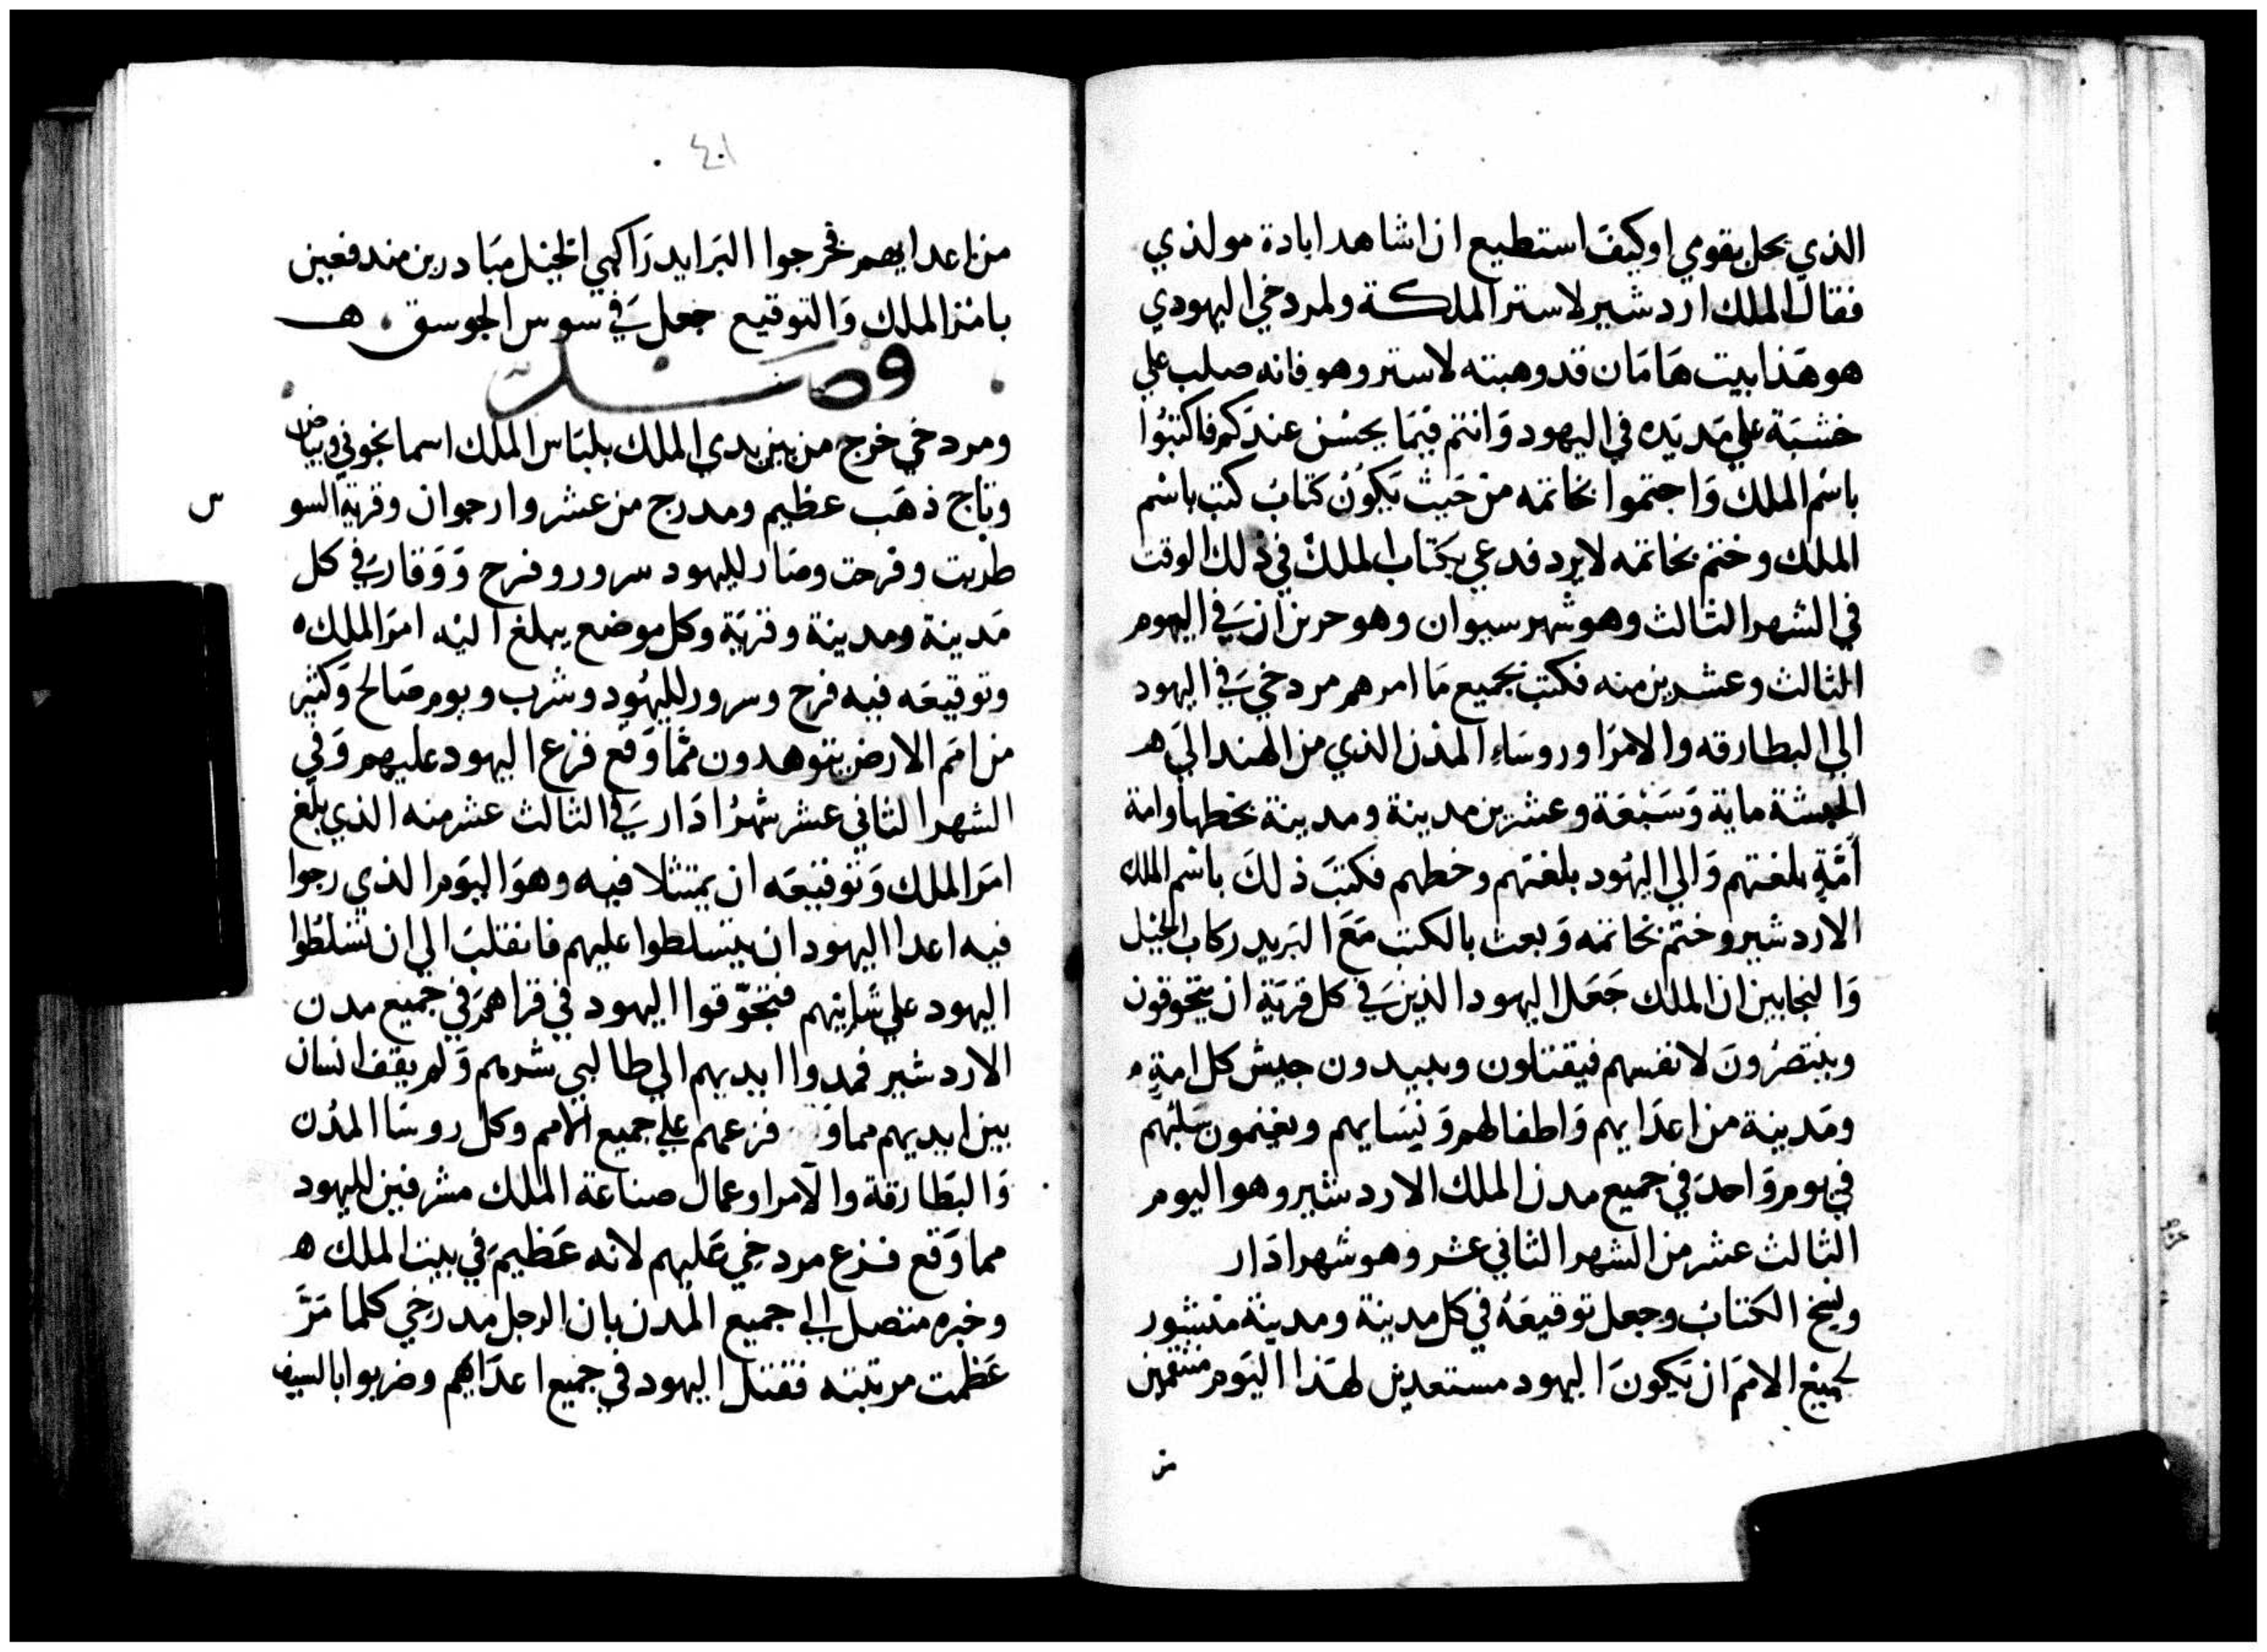 الذي يحل بقومي او كيف استطيع ان اشاهد ابادة مولدي
فقال الملك اردشير لاستر الملكة ولمردخي اليهودي
هو هذا بيت هامان قد وهبته لاستر وهو فانه صلب علي
خشبة علي مد يده في اليهود وانتم فيما يحسن عندكم فاكتبوا
باسم الملك واختموا بخاتمه من حيث يكون كتاب كتب باسم
الملك وختم بخاتمه لا يرد فدعي بكتاب الملك في ذلك الوقت
في الشهر الثالث وهو شهر سيوان وهو حزيران في اليوم
الثالث وعشرين منه فكتب بجميع ما امرهم مردخي في اليهود
الي البطارقه والامرا وروساء المدن الذي من الهند الي ه
الحبشة ماية وسبعة وعشرين مدينة ومدينة بخطها وامة
امة بلغتهم والي اليهود بلغتهم وخطهم فكتب ذلك باسم الملك
الاردشير وختم بخاتمه وبعث بالكتب مع البريد ركاب الخيل
والنجابين ان الملك جعل اليهود الذين في كل قرية ان يتجوقون
وينتصرون لانفسهم فيقتلون ويبيدون جيش كل امة
ومدينة من اعدايهم واطفالهم ونسايهم ويغنمون سلبهم
في يوم واحد في جميع مدن الملك الاردشير وهو اليوم
الثالث عشر من الشهر الثاني عشر وهو شهر ادار
ونسخ الكتاب وجعل توقيعه في كل مدينة ومدينة منشور
لجميع الامم ان يكون اليهود مستعدين لهذا اليوم منتقمين
من
٤٠١
من اعدايهم فخرجوا البرايد راكبي الخيل مبادرين مندفعين
بامر الملك والتوقيع جعل في سوس الجوسق ه
فصل
ومردخي خرج من بين يدي الملك بلباس الملك اسمانجوني وبياض
وتاج ذهب عظيم ومدرج من عشر وارجوان وقرية السو
س
طربت وفرحت وصار لليهود سرور وفرح ووقار في كل
مدينة ومدينة وقرية وكل موضع يبلغ اليه امر الملك ه
وتوقيعه فيه فرح وسرور لليهود وشرب ويوم صالح وكثير
من امم الارض يتوهدون مما وقع فزع اليهود عليهم وفي
الشهر الثاني عشر شهر ادار في الثالث عشر منه الذي بلغ
امر الملك وتوقيعه ان يمتثلا فيه وهو اليوم الذي رجوا
فيه اعدا اليهود ان يتسلطوا عليهم فانقلب الي ان تسلطوا
اليهود علي شانيهم فتجوقوا اليهود في قراهم في جميع مدن
الاردشير فمدوا ايديهم الي طالبي شرهم ولم يقف انسان
بين ايديهم مما و فزعهم علي جميع الامم وكل روسا المدن
والبطارقة والامرا وعمال صناعة الملك مشرفين لليهود
مما وقع فزع مردخي عليهم لانه عظيم في بيت الملك ه
وخبره متصل الي جميع المدن بان الرجل مدرخي كلما مر
عظمت مرتبته فقتل اليهود في جميع اعداهم وضربوا بالسيف